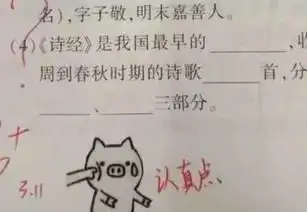 名),字子敬,明末嘉善人。
(4)《诗经》是我国最早的________,收
周到春秋时期的诗歌______首,分
______、______三部分。
3.11
认真点